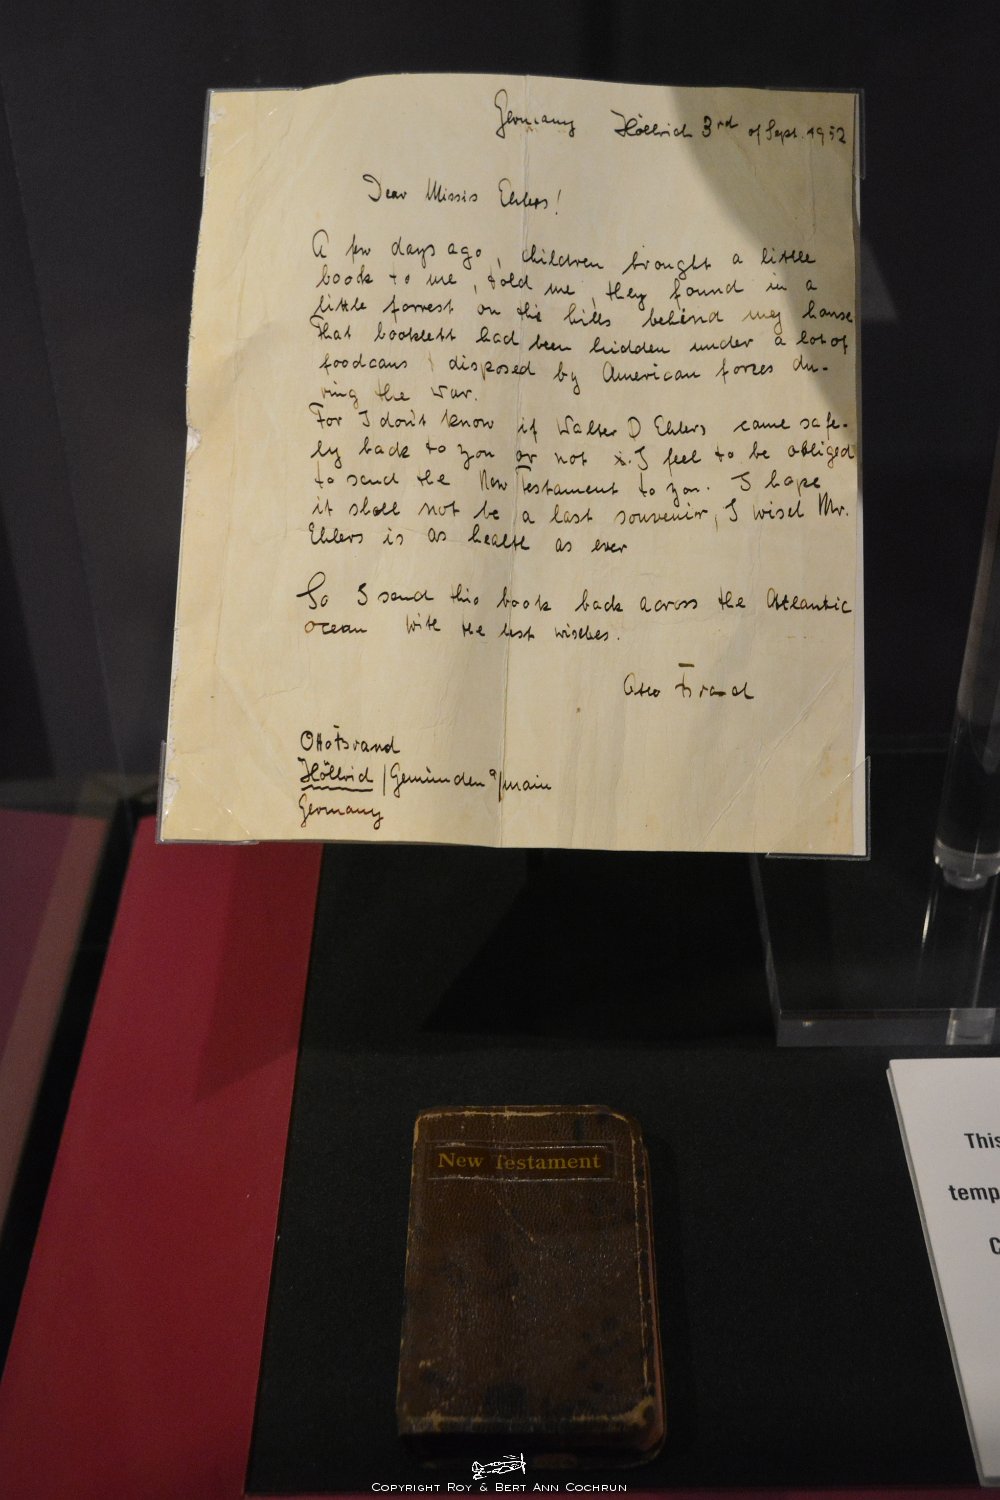 Germany Höllrich 3rd of Sept. 1952
Dear Missis Ehlers!
A few days ago, children brought a little
book to me, told me, they found in a
little forrest on the hills behind my house
That booklett had been hidden under a lot of
foodcans disposed by American forces du-
ring the war.
For I don't know if Walter D Ehlers came safe-
ly back to you or not I feel to be obliged
to send the New Testament to you. I hope
it shall not be a last souvenir, I wisch Mr.
Ehlers is as health as ever
So I send this book back across the Atlantic
ocean with the best wisches.
Otto Brand
Otto Brand
Höllrich / Gemünden a/main
Germany
New Testament
This
temp
C
COPYRIGHT ROY & BERT ANN COCHRUN